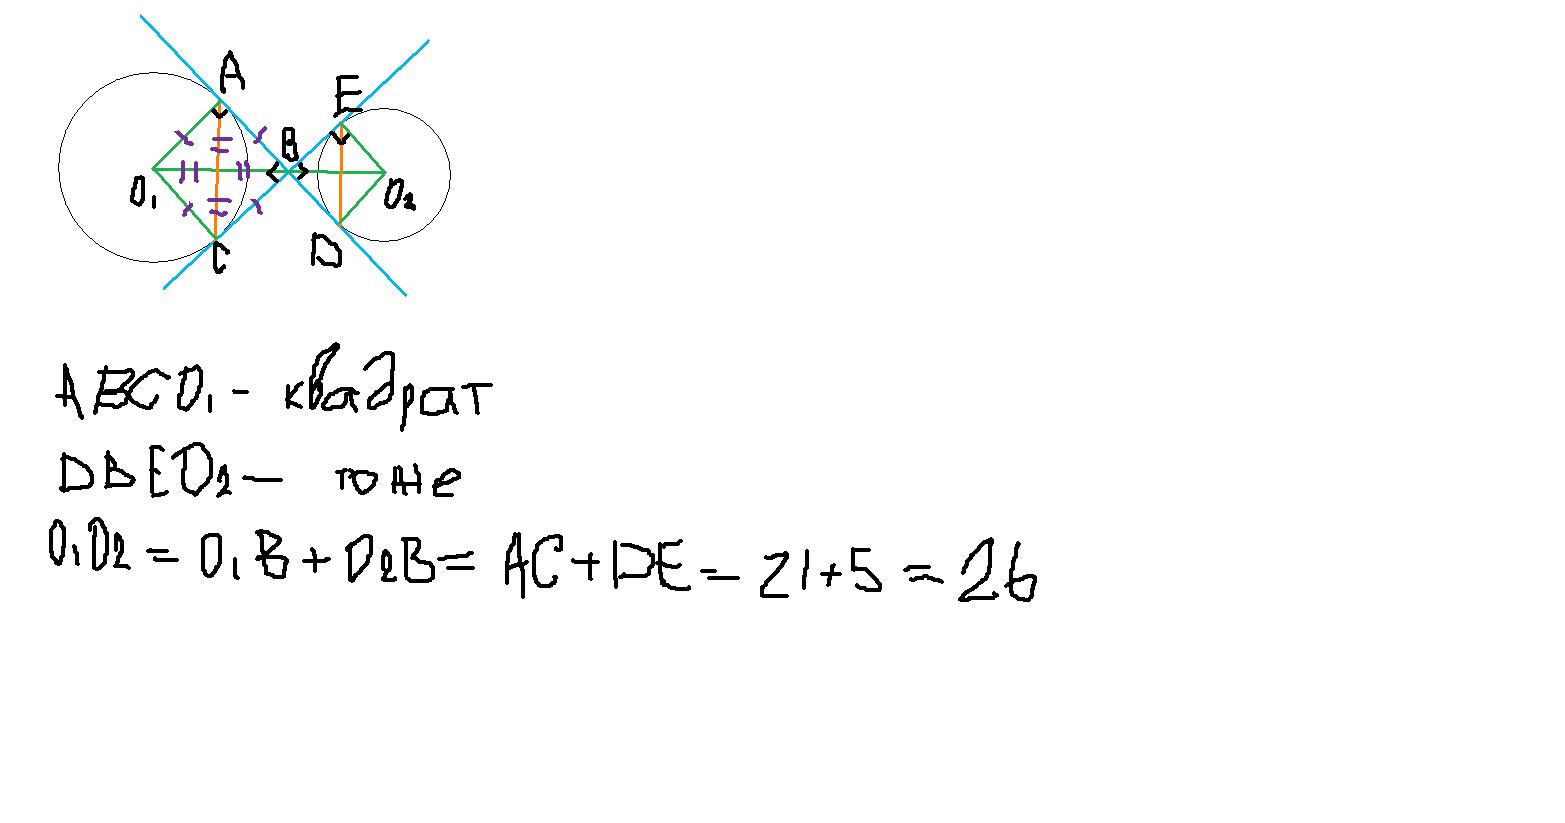 A
E
B
O₁
O₂
C
D
ABCO₁ - квадрат
DBEO₂ - тоже
O₁O₂ = O₁B + O₂B = AC + DE = 21 + 5 = 26